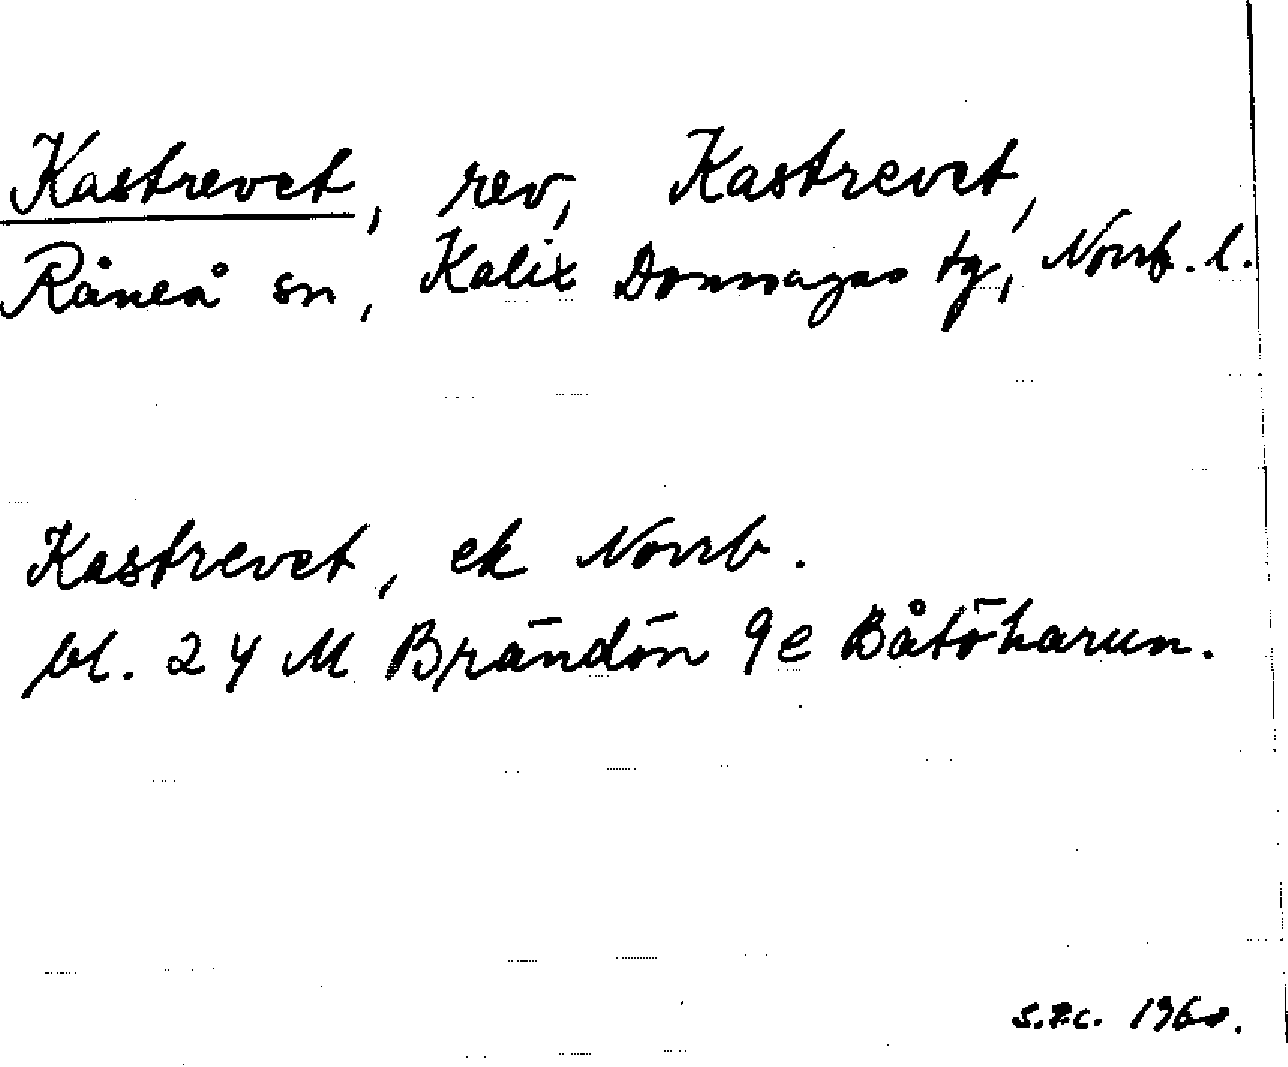 Kastrevet, rev, Kastrevet,
Råneå sn, Kalix Domsagas tg, Norrb. l.
Kastrevet, ek Norrb.
bl. 24 M Brändön 9e Båtöharun.
1960.